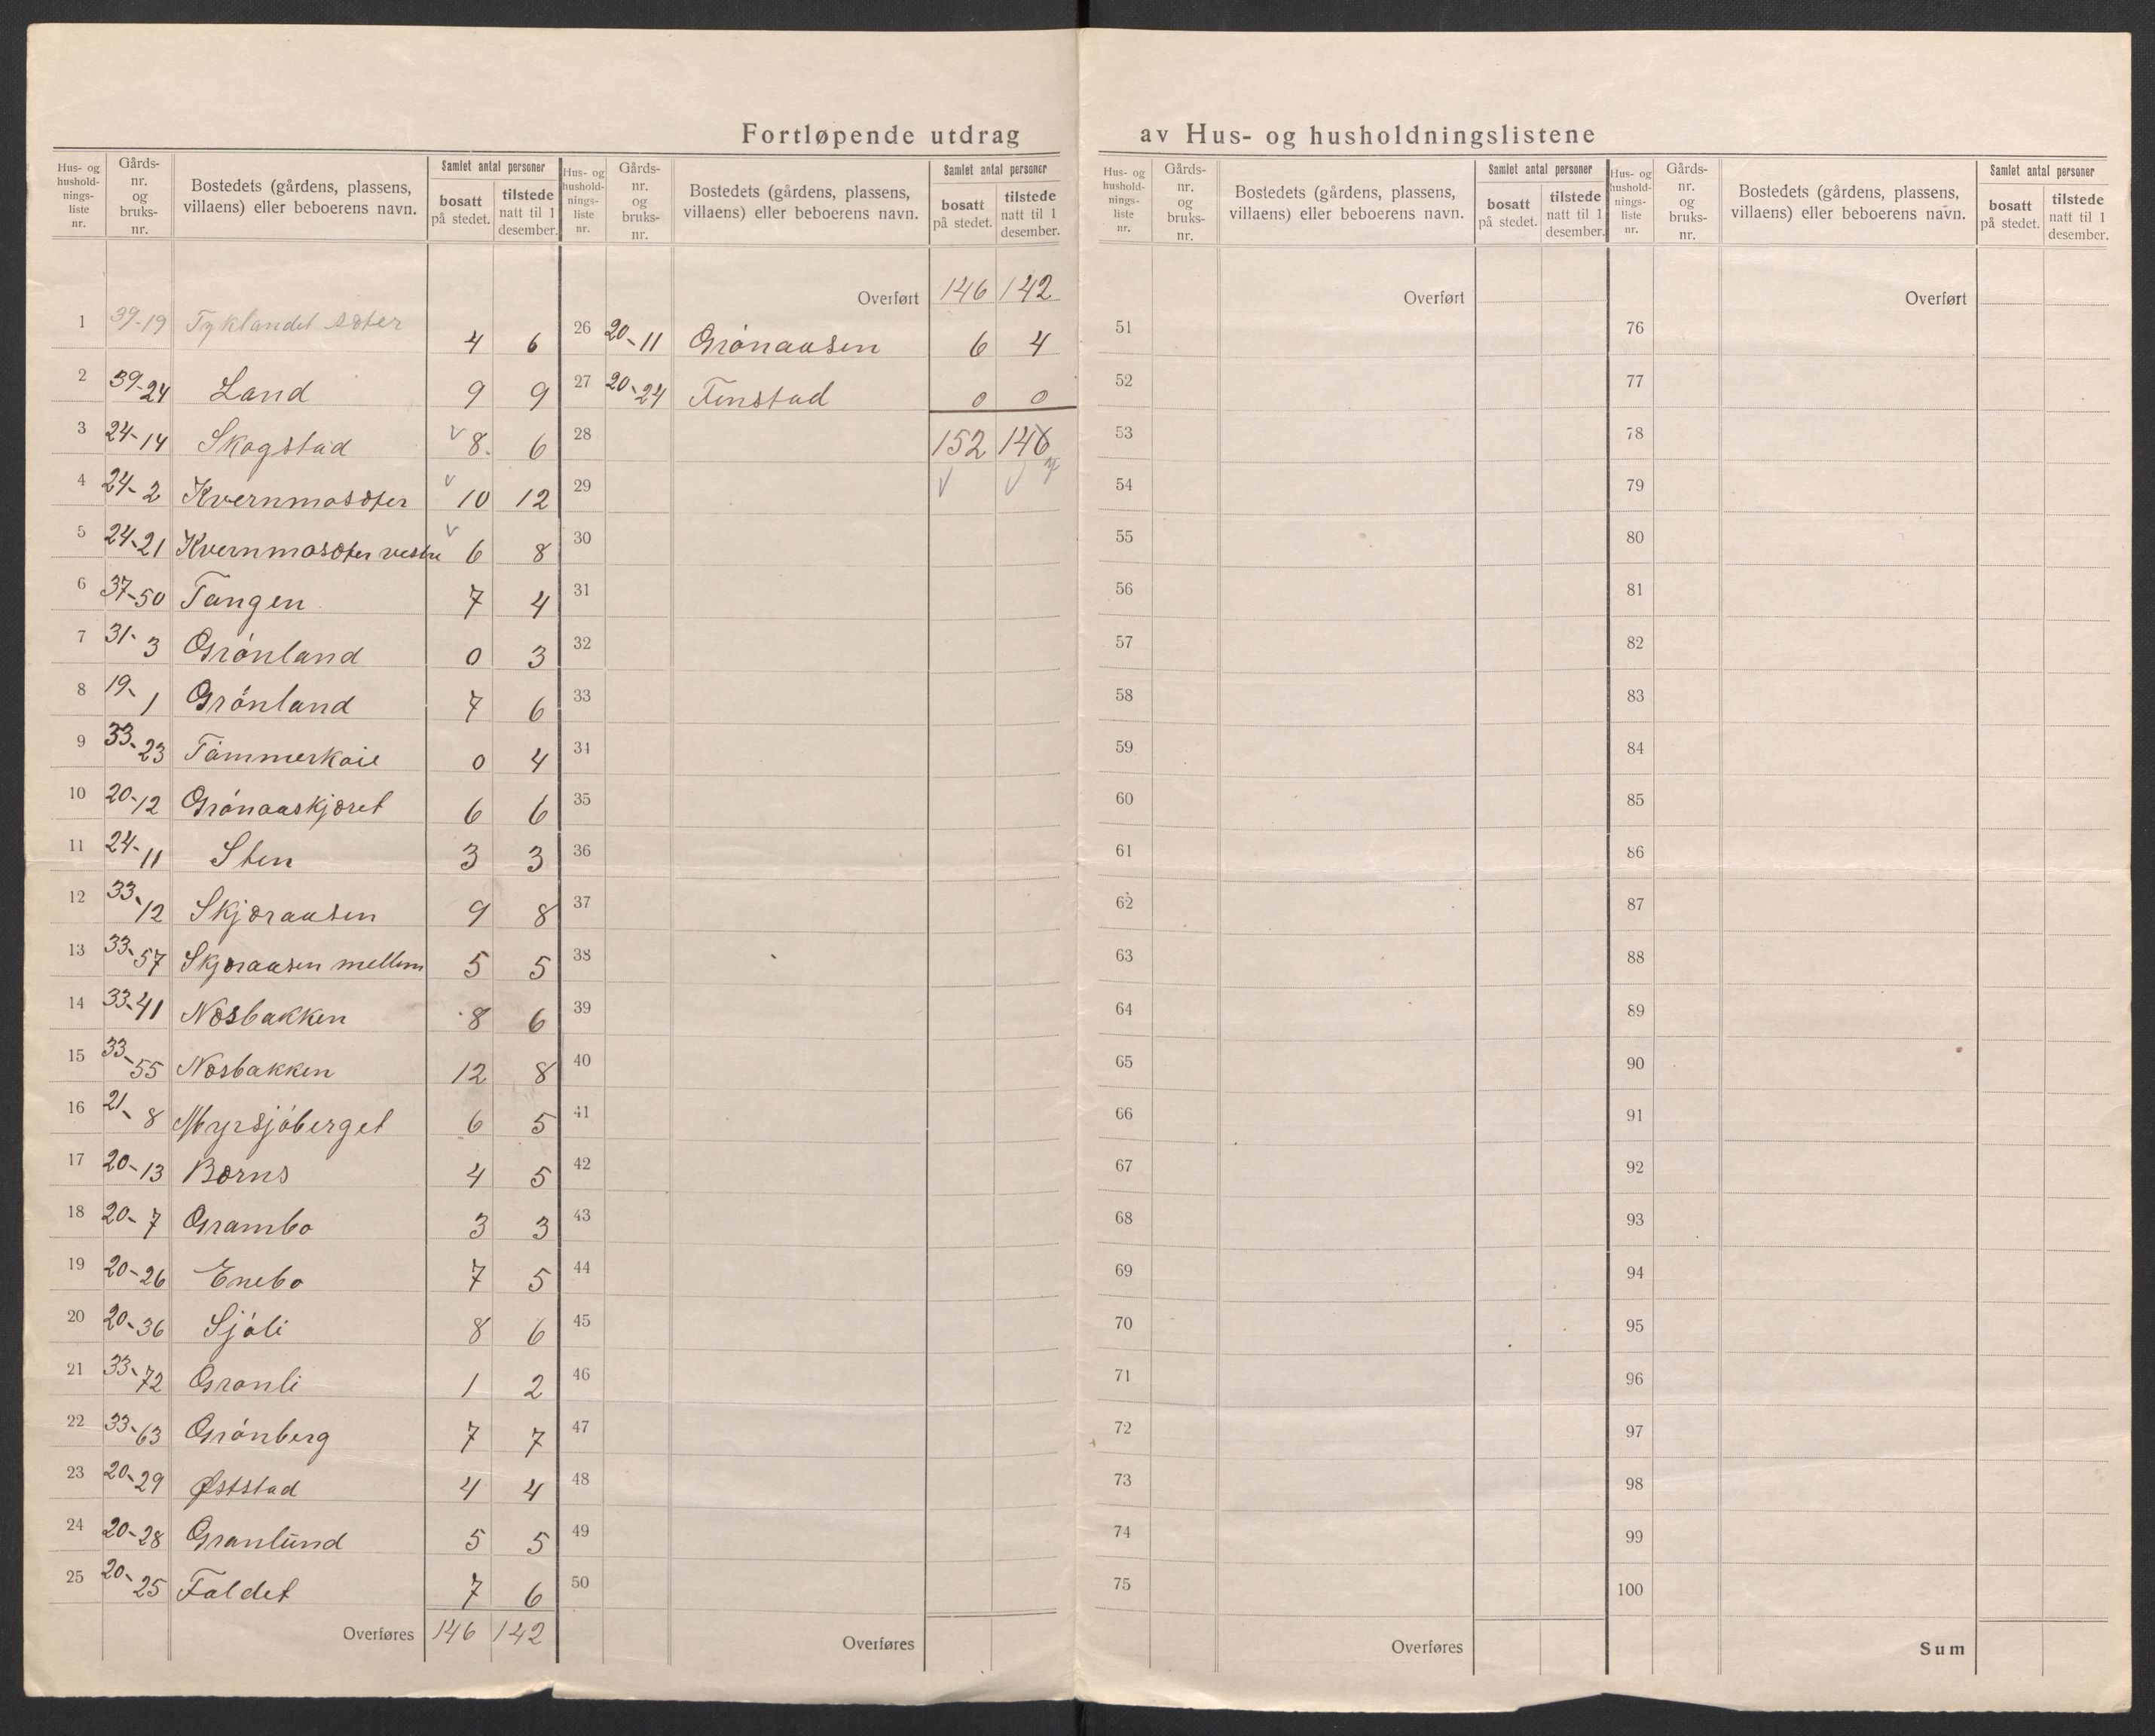 Fortløpende utdrag av Hus- og husholdningslistene
Hus- og hushold-nings-liste nr. | Gårds-nr. og bruks-nr. | Bostedets (gårdens, plassens, villaens) eller beboerens navn. | Samlet antal personer | bosatt på stedet. | tilstede natt til 1 desember.
1 39-19 Tyklandet sæter 4 6
2 39-24 Land 9 9
3 24-14 Skogstad v 8. 6
4 24-2 Kvernmosæter v 10 12
5 24-21 Kvernmosæter vestre v 6 8
6 37-50 Tangen 7 4
7 31-3 Grónland 0 3
8 19-1 Grónland 7 6
9 33-23 Tómmerkoie 0 4
10 20-12 Grónaaskjæret 6 6
11 24-11 Sten 3 3
12 33-12 Skjæraasen 9 8
13 33-57 Skjæraasen mellem 5 5
14 33-41 Næsbakken 8 6
15 33-55 Næsbakken 12 8
16 21-8 Myrsjóberget 6 5
17 20-13 Børns 4 5
18 20-7 Grambo 3 3
19 20-26 Enebo 7 5
20 20-36 Sjóli 8 6
21 33-72 Granli 1 2
22 33-63 Grónberg 7 7
23 20-29 Øststad 4 4
24 20-28 Granlund 5 5
25 20-25 Faldet 7 6
Overføres 146 142
Hus- og hushold-nings-liste nr. | Gårds-nr. og bruks-nr. | Bostedets (gårdens, plassens, villaens) eller beboerens navn. | Samlet antal personer | bosatt på stedet. | tilstede natt til 1 desember.
Overført 146 142
26 20-11 Grónaasen 6 4
27 20-24 Finstad 0 0
28 152 146
29 v v
30
31
32
33
34
35
36
37
38
39
40
41
42
43
44
45
46
47
48
49
50
Overføres
Hus- og hushold-nings-liste nr. | Gårds-nr. og bruks-nr. | Bostedets (gårdens, plassens, villaens) eller beboerens navn. | Samlet antal personer | bosatt på stedet. | tilstede natt til 1 desember.
Overført
51
52
53
54
55
56
57
58
59
60
61
62
63
64
65
66
67
68
69
70
71
72
73
74
75
Overføres
Hus- og hushold-nings-liste nr. | Gårds-nr. og bruks-nr. | Bostedets (gårdens, plassens, villaens) eller beboerens navn. | Samlet antal personer | bosatt på stedet. | tilstede natt til 1 desember.
Overført
76
77
78
79
80
81
82
83
84
85
86
87
88
89
90
91
92
93
94
95
96
97
98
99
100
Sum